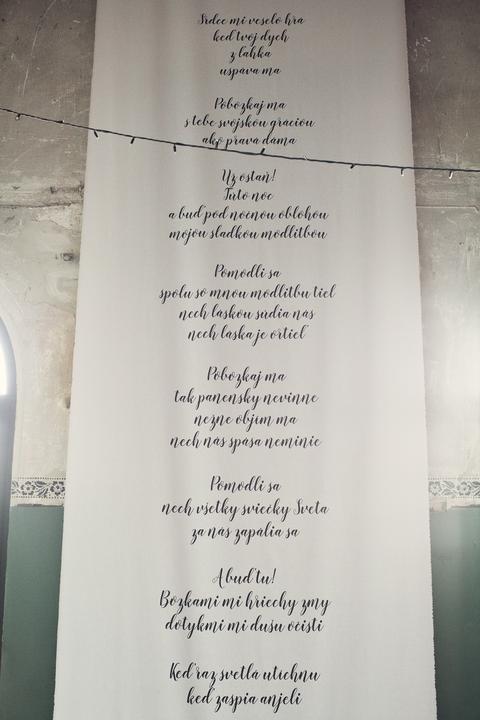 Srdce mi veselo hrá
keď tvoj dych
z ľahka
uspáva ma
Pobozkaj ma
s tebe svojskou gráciou
ako pravá dáma
Už ostaň!
Túto noc
a buď pod nočnou oblohou
mojou sladkou modlitbou
Pomodli sa
spolu so mnou modlitbu tiel
nech láskou súdia nás
nech láska je ortieľ
Pobozkaj ma
tak panensky nevinne
nežne objím ma
nech nás spása neminie
Pomodli sa
nech všetky sviečky Sveta
za nás zapália sa
A buď tu!
Bozkami mi hriechy zmy
dotykmi mi dušu očisti
Keď raz svetlá utíchnu
keď zaspia anjeli